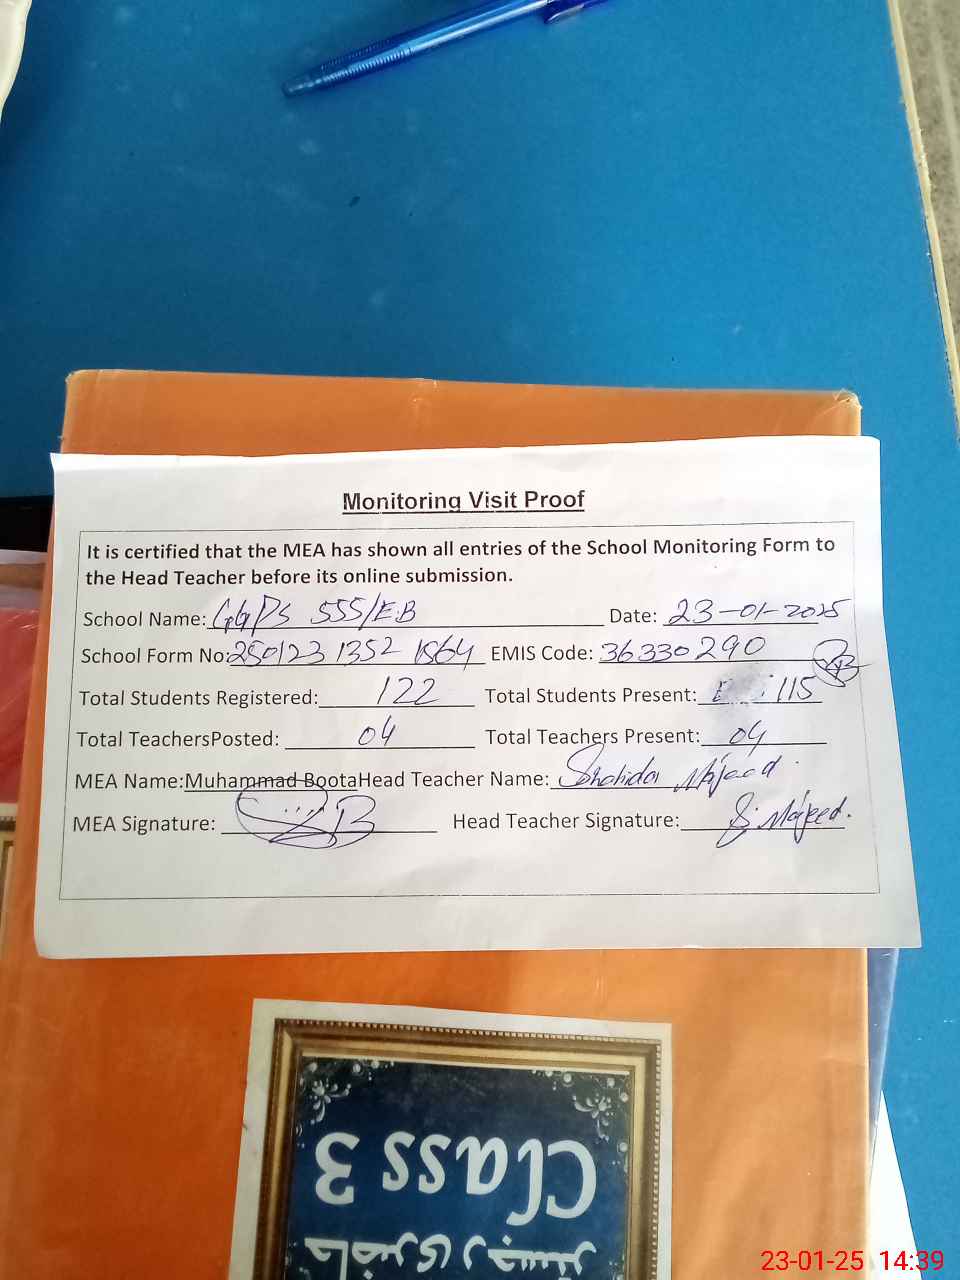 Monitoring Visit Proof
It is certified that the MEA has shown all entries of the School Monitoring Form to
the Head Teacher before its online submission.
School Name: GGPS 555/E.B Date: 23-01-2025
School Form No: 250123 1352 1564 EMIS Code: 36330290
Total Students Registered: 122 Total Students Present: 115
Total TeachersPosted: 04 Total Teachers Present: 04
MEA Name:Muhammad BootaHead Teacher Name: Shahida Majeed
MEA Signature: Head Teacher Signature: S. Majeed.
Class 3
حاضری رجسٹر
23-01-25 14:39